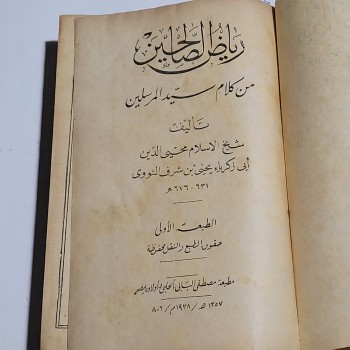 رياض الصالحين
من كلام سيد المرسلين
تأليف
شيخ الاسلام محيي الدين
أبي زكرياء يحيى بن شرف النووى
٦٣١ - ٦٧٦ هـ
الطبعة الأولى
حقوق الطبع والنقل محفوظة
مطبعة مصطفى البابى الحلبى وأولاده بمصر
١٣٥٧ هـ / ١٩٣٨ م / ٨٠٦